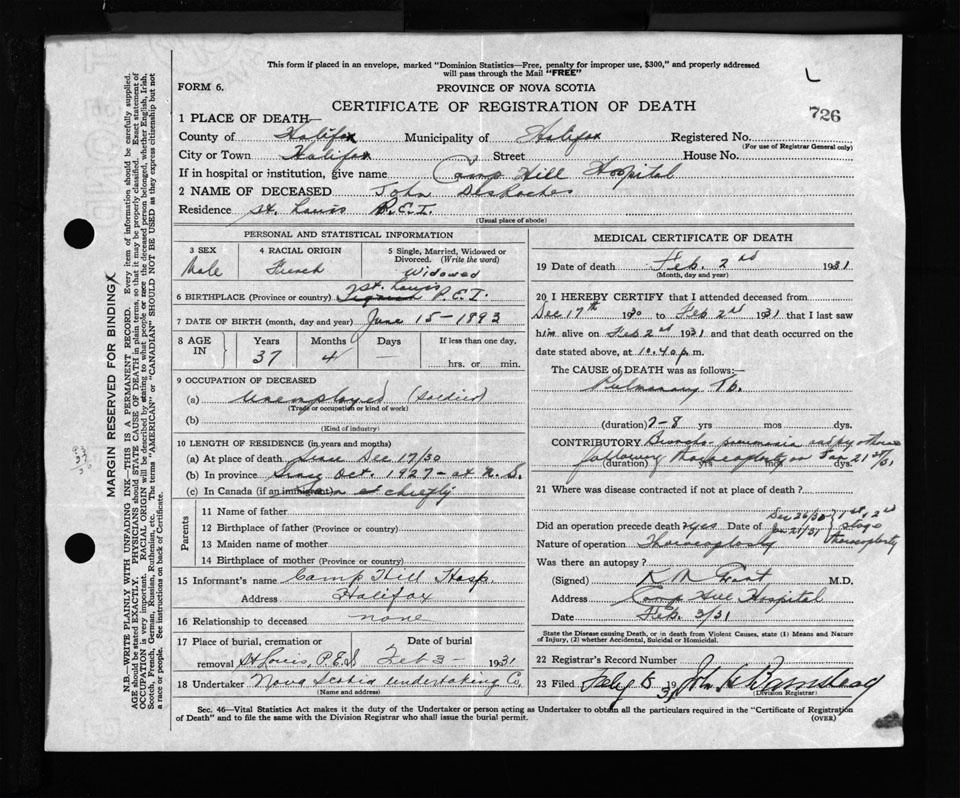 This form if placed in an envelope, marked "Dominion Statistics—Free, penalty for improper use, $300," and properly addressed
will pass through the Mail "FREE"
L
FORM 6. PROVINCE OF NOVA SCOTIA
CERTIFICATE OF REGISTRATION OF DEATH
726
1 PLACE OF DEATH—
County of Halifax Municipality of Halifax Registered No.
(For use of Registrar General only)
City or Town Halifax Street House No.
If in hospital or institution, give name Camp Hill Hospital
2 NAME OF DECEASED John DesRoches
Residence St. Louis P.E.I.
(Usual place of abode)
PERSONAL AND STATISTICAL INFORMATION
3 SEX 4 RACIAL ORIGIN 5 Single, Married, Widowed or
Divorced. (Write the word)
Male French Widowed
St. Louis
6 BIRTHPLACE (Province or country) P.E.I.
7 DATE OF BIRTH (month, day and year) June 15-1893
8 AGE IN Years Months Days If less than one day,
37 4 — hrs. or min.
9 OCCUPATION OF DECEASED
(a) Unemployed (Soldier)
(Trade or occupation or kind of work)
(b)
(Kind of industry)
10 LENGTH OF RESIDENCE (in years and months)
(a) At place of death Since Dec 17/30
(b) In province Since Oct. 1927- at N.S.
(c) In Canada (if an immigrant) chiefly
Parents
11 Name of father
12 Birthplace of father (Province or country)
13 Maiden name of mother
14 Birthplace of mother (Province or country)
15 Informant's name Camp Hill Hosp.
Address Halifax
16 Relationship to deceased none
17 Place of burial, cremation or Date of burial
removal St Louis, P.E.I Feb 3 - 1931
18 Undertaker Nova Scotia Undertaking Co.
(Name and address)
MEDICAL CERTIFICATE OF DEATH
19 Date of death Feb. 2nd 1931
(Month, day and year)
20 I HEREBY CERTIFY that I attended deceased from
Dec 17th 1930 to Feb 2nd 1931 that I last saw
him alive on Feb 2nd 1931 and that death occurred on the
date stated above, at 10.40 p.m.
The CAUSE of DEATH was as follows:—
Pulmonary Tb.
(duration) 7-8 yrs mos dys.
CONTRIBUTORY Broncho-pneumonia
following thoracoplasty on Jan 21st/31
(duration) yrs mos dys.
21 Where was disease contracted if not at place of death?
Did an operation precede death? yes Date of Dec 26/30 Jan 21/31 1st & 2nd stage thoracoplasty
Nature of operation Thoracoplasty
Was there an autopsy?
(Signed) K M Grant M.D.
Address Camp Hill Hospital
Date Feb. 3/31
State the Disease causing Death, or in death from Violent Causes, state (1) Means and Nature
of Injury, (2) whether Accidental, Suicidal or Homicidal.
22 Registrar's Record Number
23 Filed 193
(Division Registrar)
Sec. 46—Vital Statistics Act makes it the duty of the Undertaker or person acting as Undertaker to obtain all the particulars required in the "Certificate of Registration
of Death" and to file the same with the Division Registrar who shall issue the burial permit. (OVER)
MARGIN RESERVED FOR BINDING
N.B.—WRITE PLAINLY WITH UNFADING INK—THIS IS A PERMANENT RECORD. Every item of information should be carefully supplied.
AGE should be stated EXACTLY. PHYSICIANS should STATE CAUSE OF DEATH in plain terms, so that it may be properly classified. Exact statement of
OCCUPATION is very important. RACIAL ORIGIN will be described by stating to what people or race the deceased person belonged, whether English, Irish,
Scotch, French, German, Russian, Ruthenian, etc. The terms "AMERICAN" or "CANADIAN" SHOULD NOT BE USED as they express citizenship but not
a race or people. See instructions on back of Certificate.